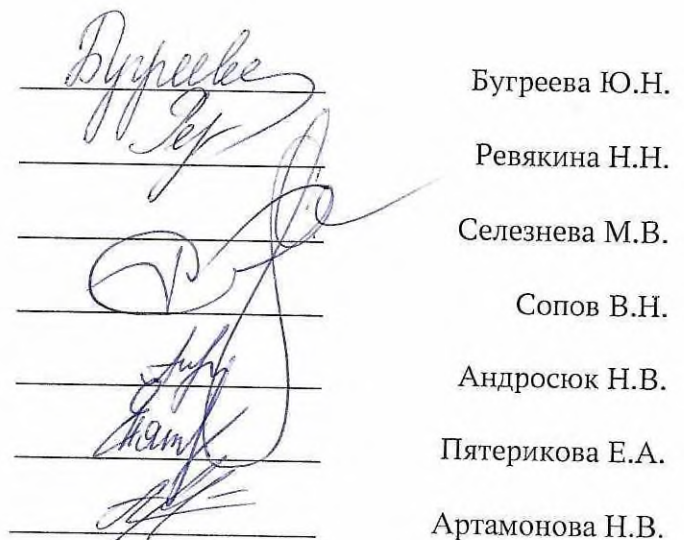 Бугреева Бугреева Ю.Н.
Рев Ревякина Н.Н.
Селезнева М.В.
Сопов В.Н.
Андросюк Н.В.
Пятерикова Е.А.
Артамонова Н.В.